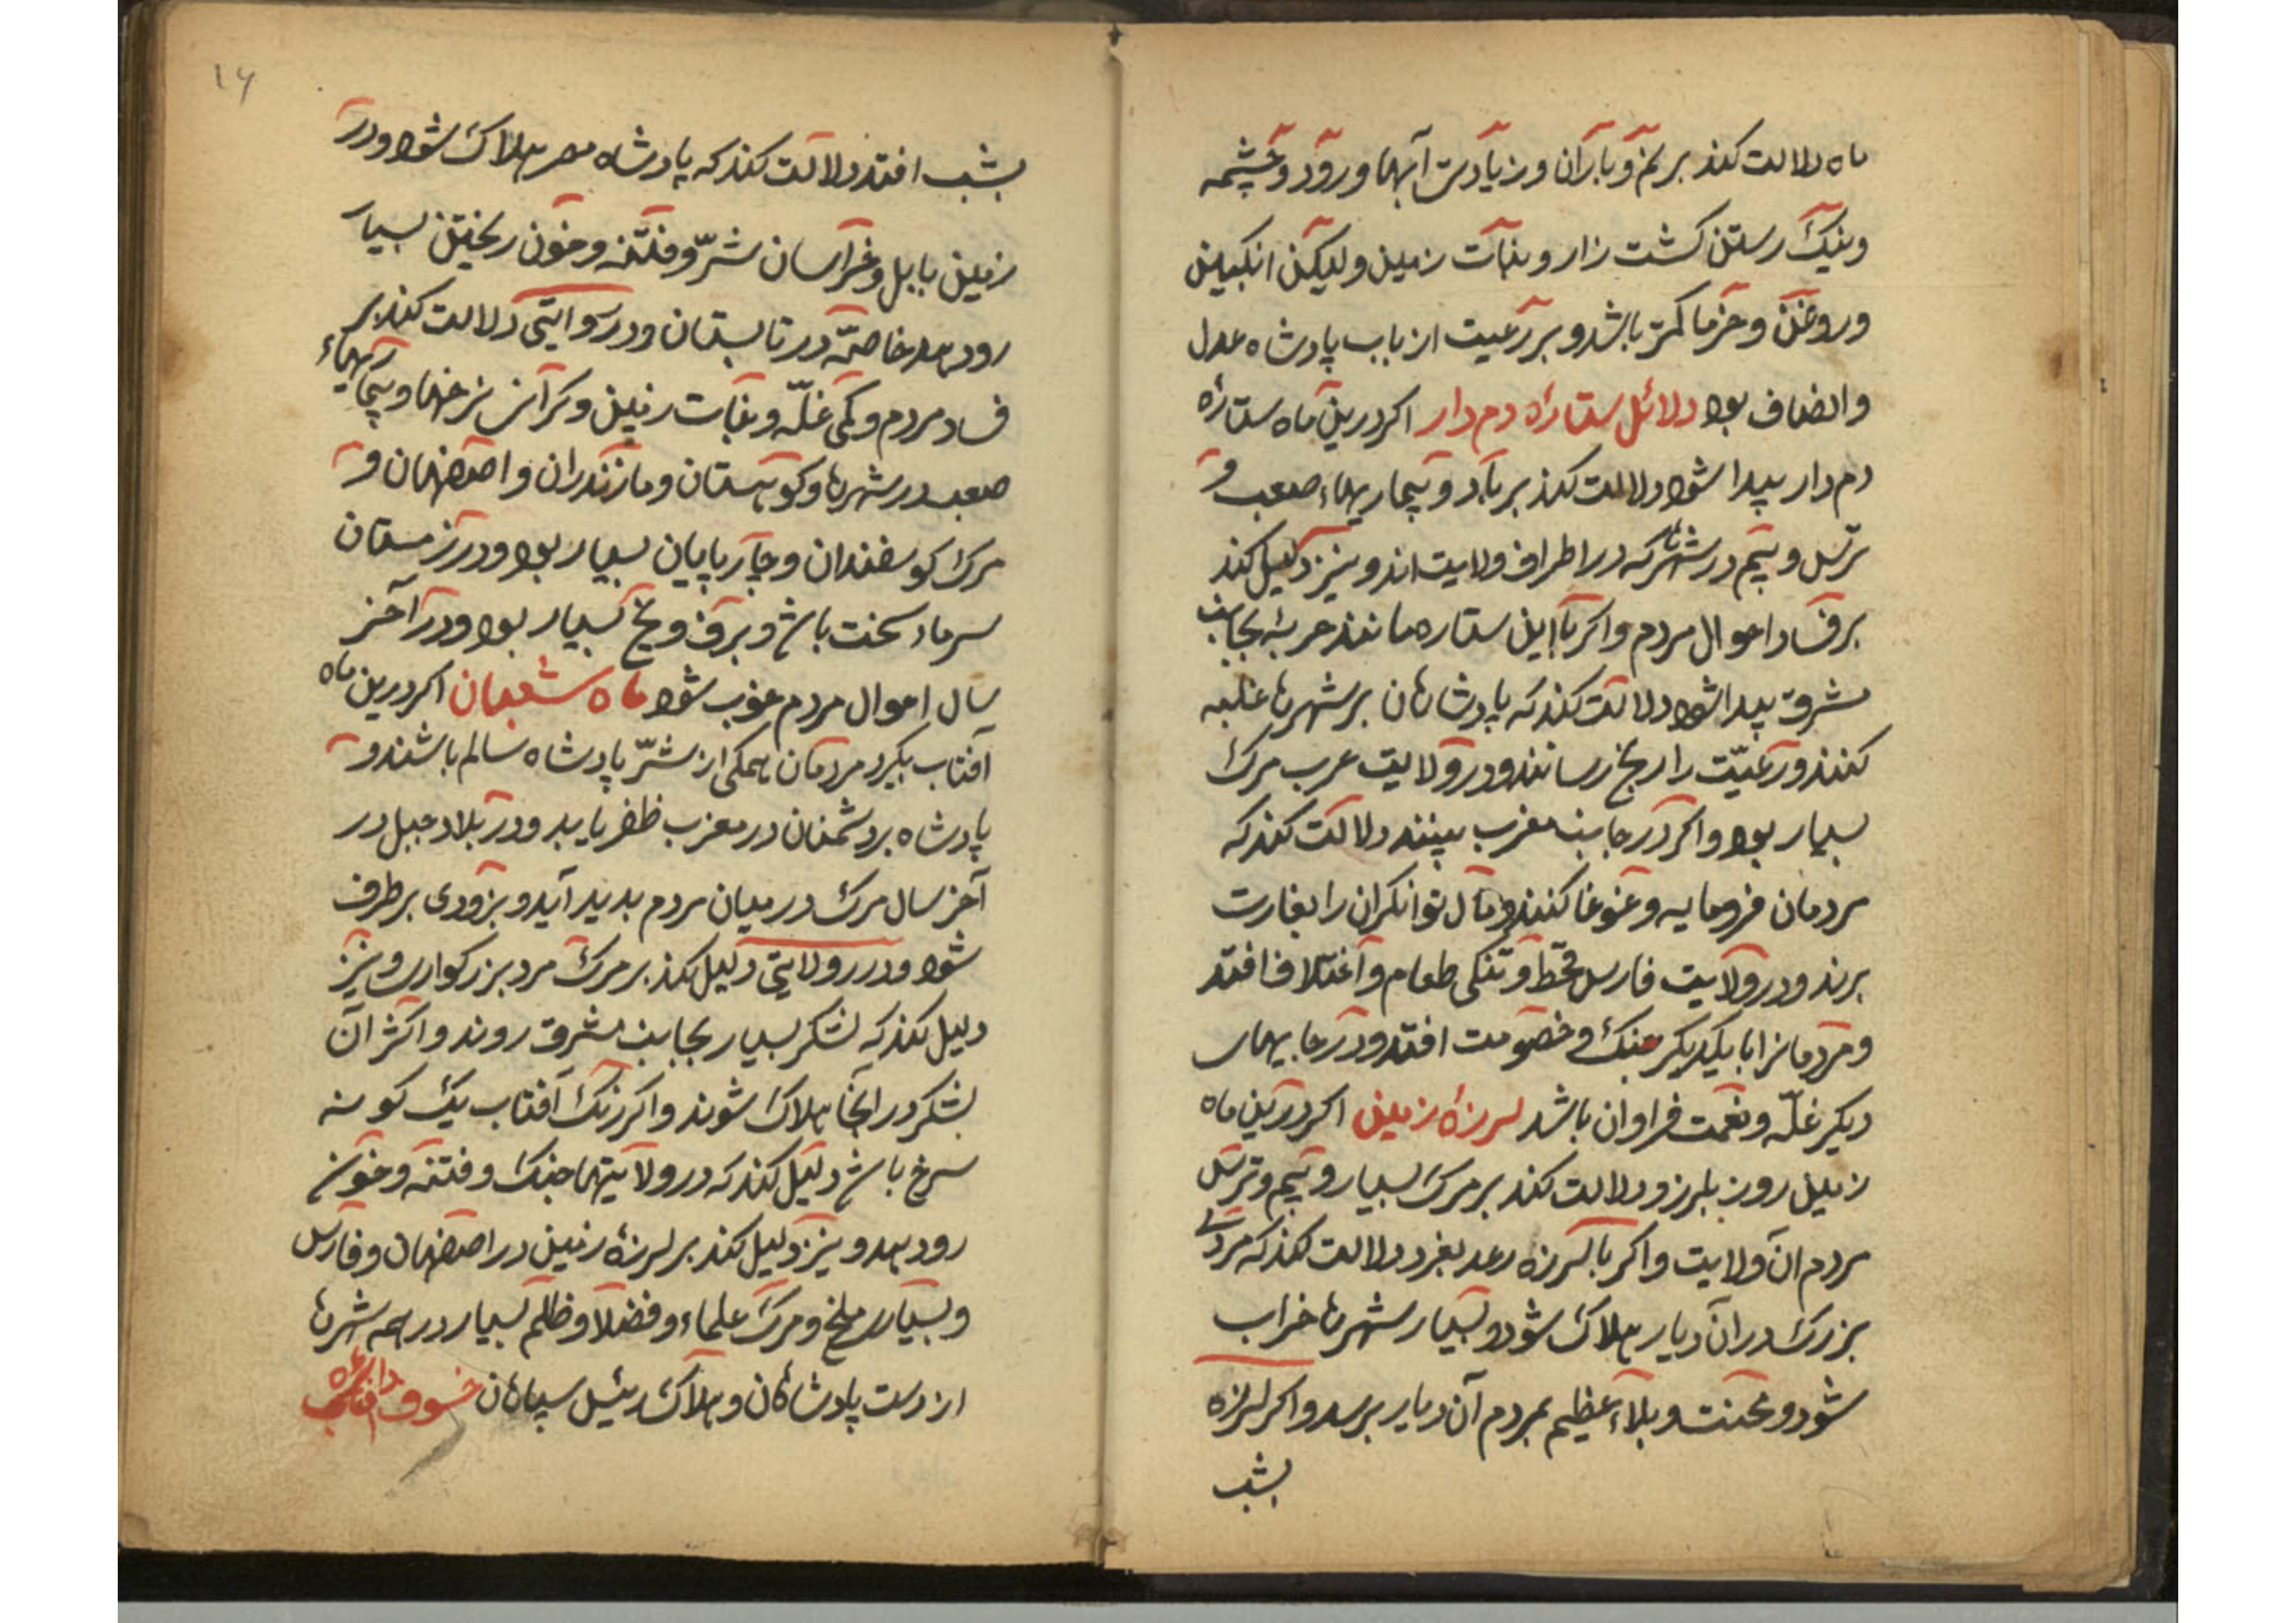 ماه دلالت کند بر نم و باران و زیادت آبها و رود و چشمه
و نیک رستن کشت زار و نبات زمین و لیکن انکبین
و روغن و خرما کمتر باشد و بر رعیت از باب پادشاه عدل
و انصاف بود دلائل ستارۀ دم دار اکر درین ماه ستارۀ
دم دار پیدا شود دلالت کند بر باد و بیماریهاء صعب و
ترس و بیم در شهرها که در اطراف ولایت اند و نیز دلیل کند
بر فساد احوال مردم و اکر با این ستاره مانند حربۀ بجانب
مشرق پیدا شود دلالت کند که پادشاهان بر شهرها غلبه
کنند و رعیّت را رنج رسانند و در ولایت عرب مرک
بسیار بود و اکر در جانب مغرب بینند دلالت کند که
مردمان فرومایه و غوغا کنند و مال توانکران را بغارت
برند و در ولایت فارس قحط و تنکی طعام و اختلاف افتد
و مردمانرا با یکدیکر جنک و خصومت افتد و در جایهای
دیکر غلّه و نعمت فراوان باشد لرزۀ زمین اکر درین ماه
زمین روز بلرزد دلالت کند بر مرک بسیار و بیم و ترس
مردم آن ولایت و اکر با لرزه رعد بغرد دلالت کند که مردی
بزرک در آن دیار هلاک شود و بسیار شهرها خراب
شود و محنت و بلاء عظیم بمردم آن دیار برسد و اکر لرزه
بشب
۱۶
بشب افتد دلالت کند که پادشاه مصر هلاک شود و در
زمین بابل و خراسان شرّ و فتنه و خون ریختن بسیار
رود بهد خاصّه در تابستان و در روایتی دلالت کند بر
فساد مردم و کمی غلّه و نبات زمین و کرانی نرخها و بیماریهاء
صعب در شهرها و کوهستان و مازندران و اصفهان و
مرک کوسفندان و چارپایان بسیار بود و در زمستان
سرماء سخت باشد و برف و یخ بسیار بود و در آخر
سال احوال مردم خوب شود ماه شعبان اکر درین ماه
آفتاب بکیرد مردمان همکی از شرّ پادشاه سالم باشند و
پادشاه بر دشمنان در مغرب ظفر یابد و در بلاد جبل در
آخر سال مرک در میان مردم بدید آید و بزودی برطرف
شود و در روایتی دلیل کند بر مرک مرد بزرکوار و نیز
دلیل کند که لشکر بسیار بجانب مشرق روند و اکثر آن
لشکر در آنجا هلاک شوند و اکر رنک آفتاب یک کونه
سرخ باشد دلیل کند که در ولایتها جنک و فتنه و خون
رود بهد و نیز دلیل کند بر لرزۀ زمین در اصفهان و فارس
و بسیاری ملخ و مرک علماء و فضلا و ظلم بسیار در همه شهرها
از دست پادشاهان و هلاک رئیس سپاهان خسوف